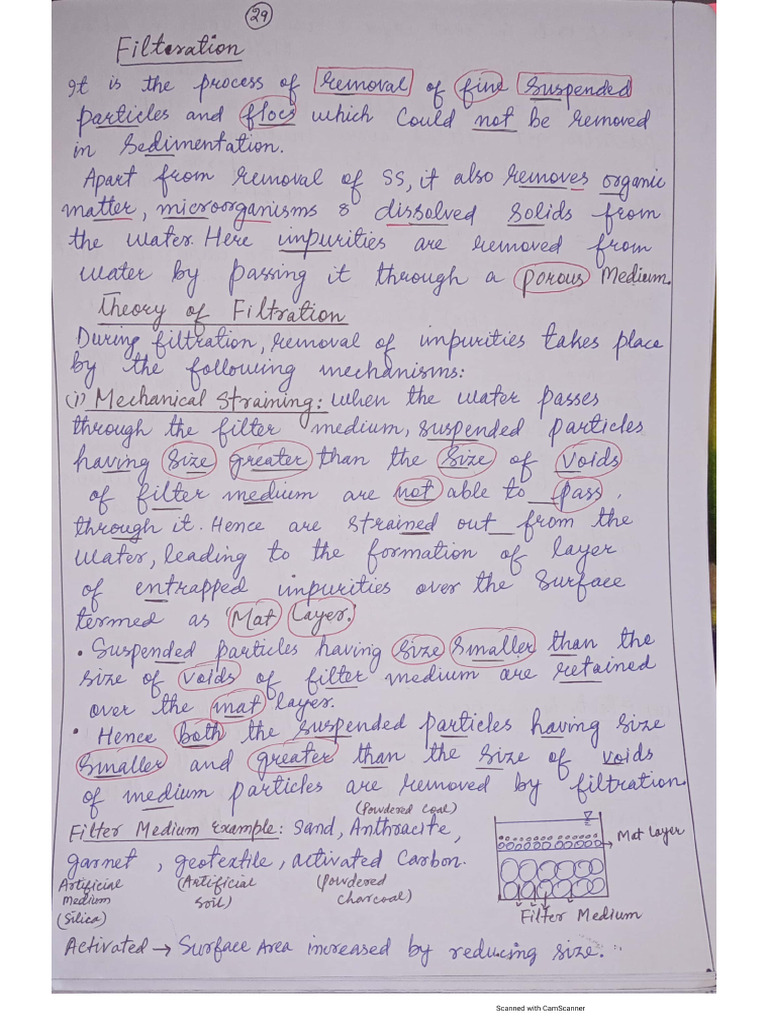 29
Filteration
It is the process of removal of fine suspended
particles and flocs which could not be removed
in sedimentation.
Apart from removal of SS, it also removes organic
matter, microorganisms & dissolved solids from
the water. Here impurities are removed from
water by passing it through a porous Medium.
Theory of Filtration
During filtration, removal of impurities takes place
by the following mechanisms:
(i) Mechanical Straining: when the water passes
through the filter medium, suspended particles
having size greater than the size of voids
of filter medium are not able to pass
through it. Hence are strained out from the
water, leading to the formation of layer
of entrapped impurities over the surface
termed as 'Mat Layer.'
• Suspended particles having size smaller than the
size of voids of filter medium are retained
over the mat layer.
• Hence both the suspended particles having size
smaller and greater than the size of voids
of medium particles are removed by filtration.
(Powdered coal)
Filter Medium Example: Sand, Anthracite,
garnet, geotextile, activated carbon.
Artificial Medium (Silica)
(Artificial soil)
(Powdered charcoal)
Mat Layer
Filter Medium
Activated → Surface Area increased by reducing size.
Scanned with CamScanner